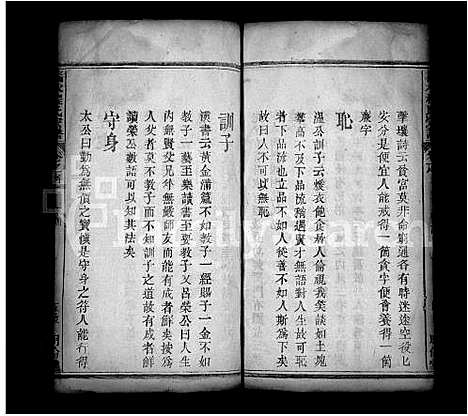 擊壤詩云貧富莫非命窮通各有時迷途空役已
安分是便宜人能戒得一箇貪字便會養得一箇
廉字
恥
溫公訓子云煖衣飽食於人倫視我笑談如土塊
著高不及下品流路遇賢才無語對人生故可恥
者下品流也立品不如人從善不如人斯為下矣
故曰人不可以無恥
訓子
漢書云黃金滿籯不如教子一經賜子一金不如
教子一藝至樂讀書至要教子又呂榮公曰人生
內無賢父兄外無嚴師友而能有成者鮮矣接為
人父者莫不教子而不知訓子之道故有成者鮮
讀榮公數語可以知其法矣
守身
太公曰勤為無價之寶慎是守身之符人能行得